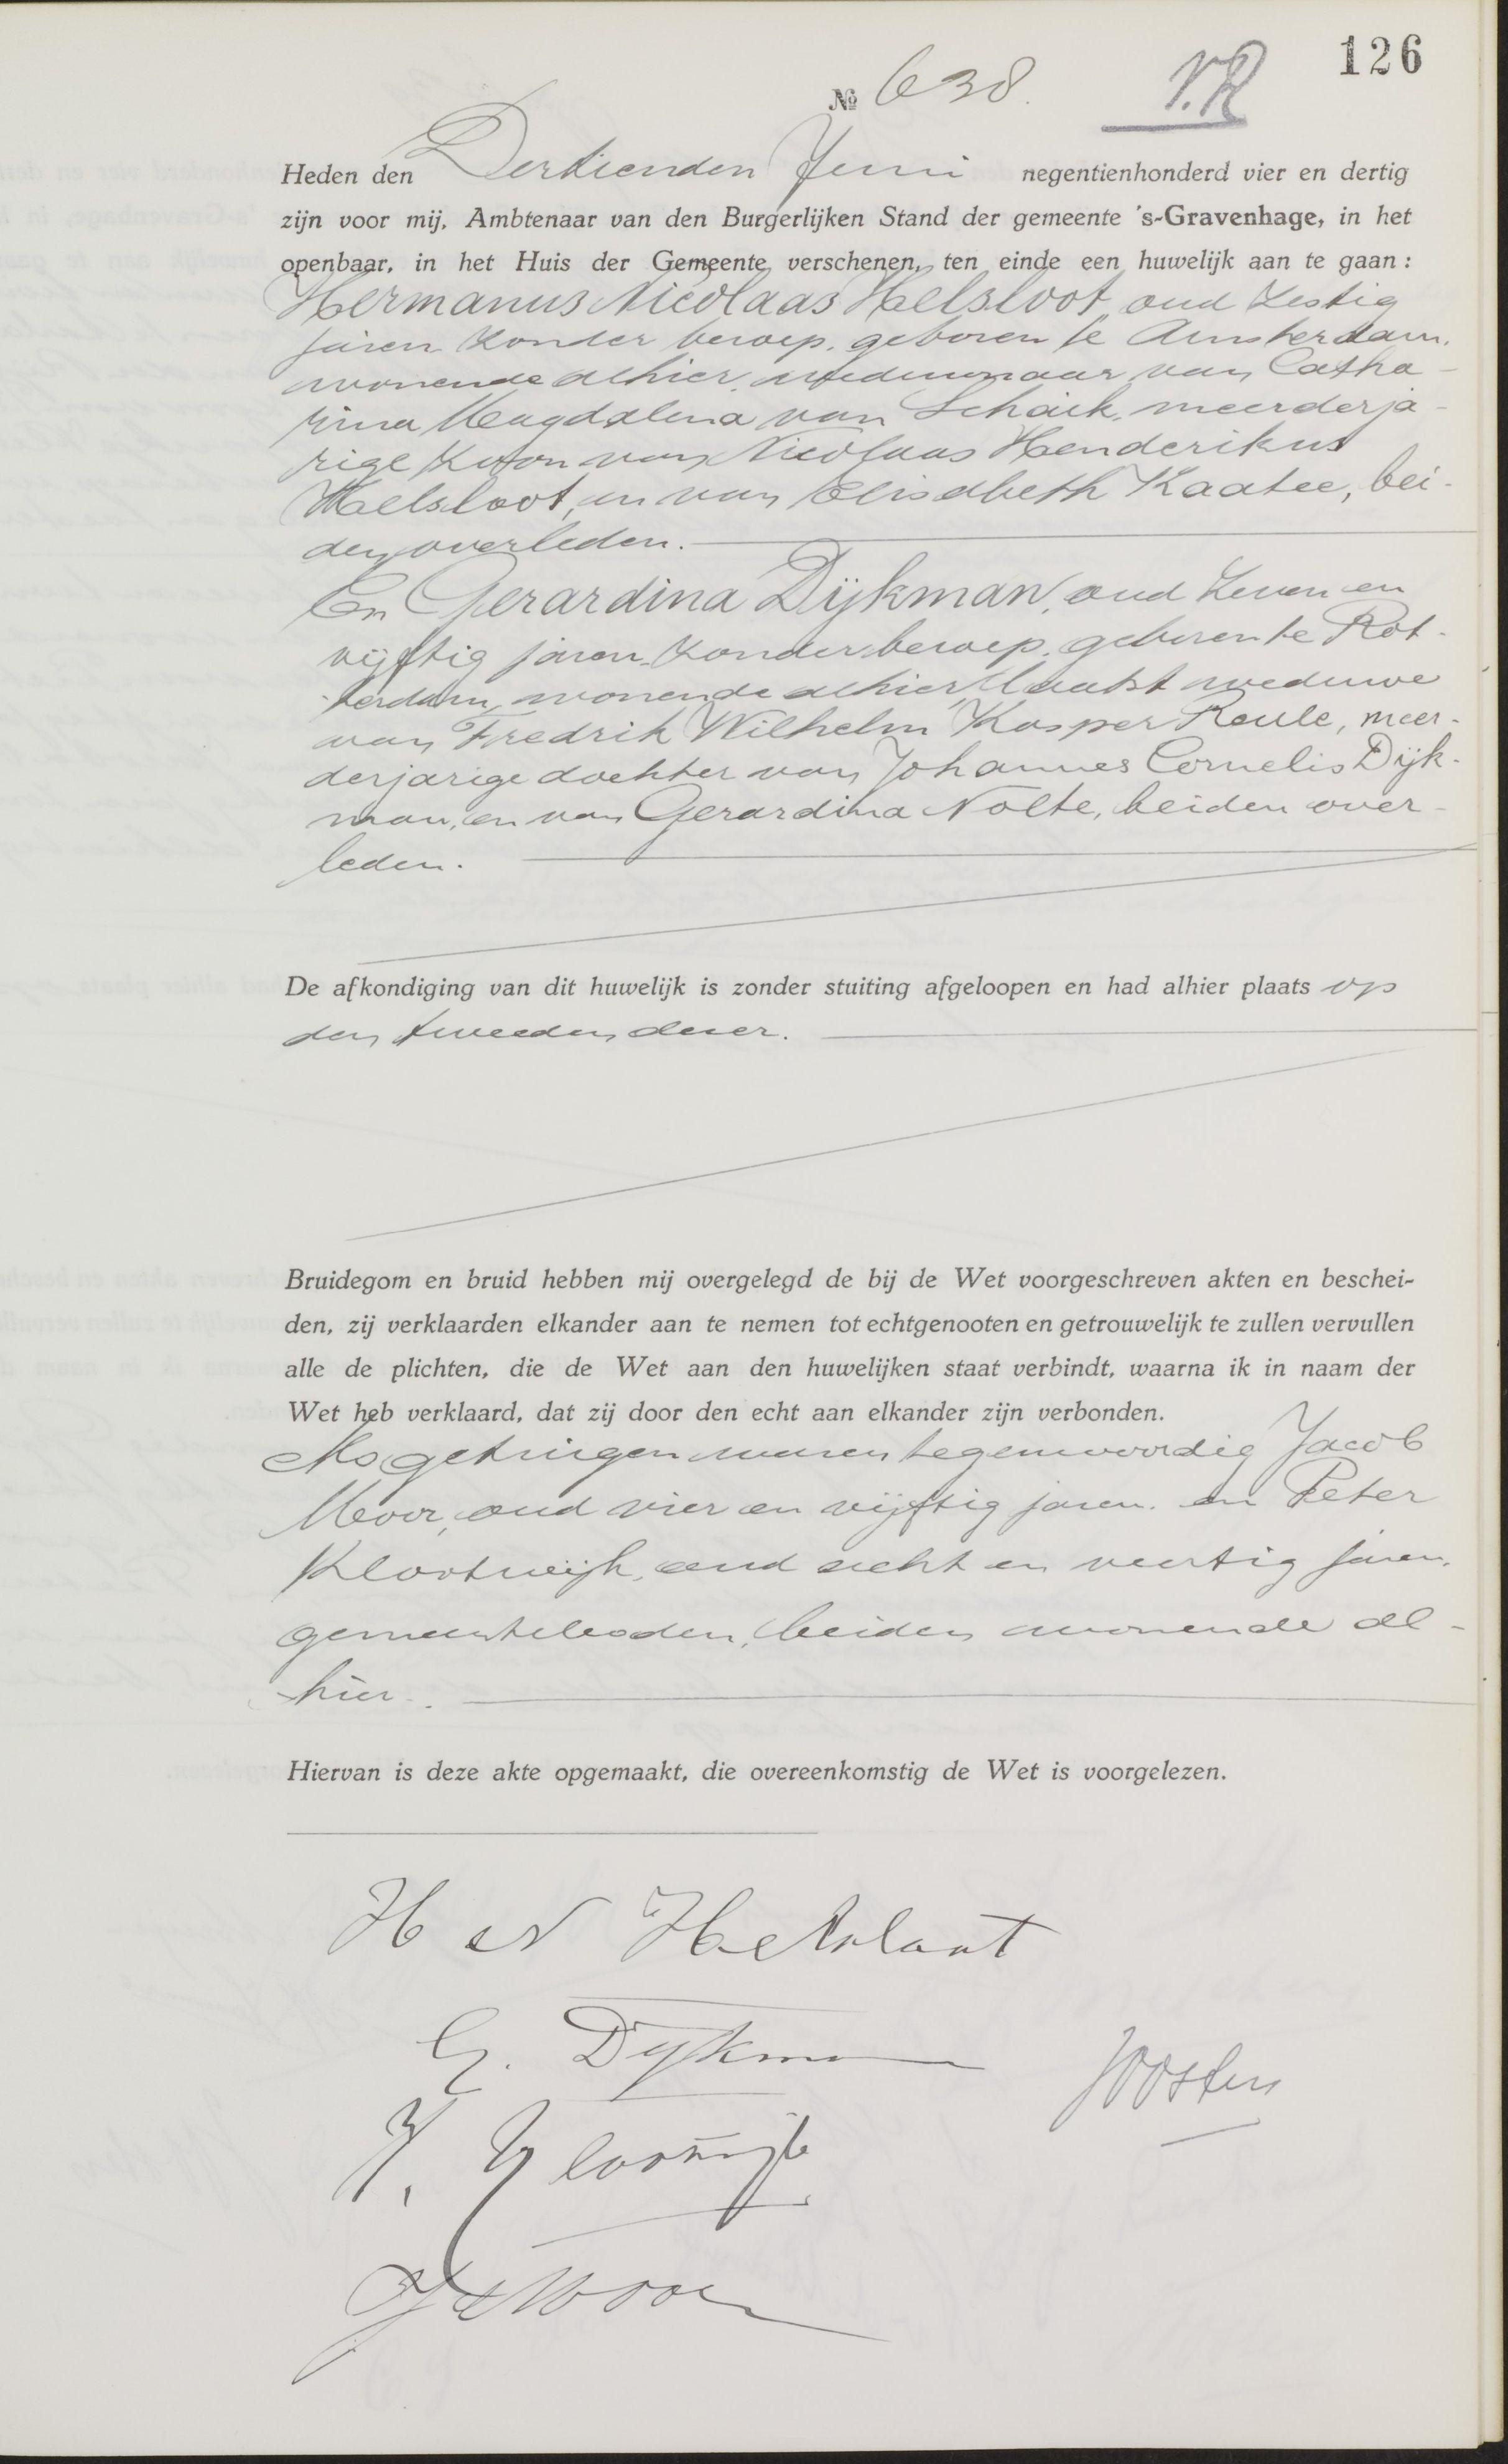 126
№ 638.
V.R
Heden den Dertienden Juni negentienhonderd vier en dertig
zijn voor mij, Ambtenaar van den Burgerlijken Stand der gemeente 's-Gravenhage, in het
openbaar, in het Huis der Gemeente verschenen, ten einde een huwelijk aan te gaan:
Hermanus Nicolaas Helsloot, oud zestig
jaren zonder beroep, geboren te Amsterdam,
wonende alhier, weduwnaar van Catha-
rina Magdalena van Schaik, meerderja-
rige zoon van Nicolaas Henderikus
Helsloot, en van Elisabeth Kaatee, bei-
den overleden.
En Gerardina Dijkman, oud zeven en
vijftig jaren, zonder beroep, geboren te Rot-
terdam, wonende alhier, laatst weduwe
van Fredrik Wilhelm Kasper Reule, meer-
derjarige dochter van Johannes Cornelis Dijk-
man, en van Gerardina Nolte, beiden over-
leden.
De afkondiging van dit huwelijk is zonder stuiting afgeloopen en had alhier plaats op
den tweeden dezer.
Bruidegom en bruid hebben mij overgelegd de bij de Wet voorgeschreven akten en beschei-
den, zij verklaarden elkander aan te nemen tot echtgenooten en getrouwelijk te zullen vervullen
alle de plichten, die de Wet aan den huwelijken staat verbindt, waarna ik in naam der
Wet heb verklaard, dat zij door den echt aan elkander zijn verbonden.
Als getuigen waren tegenwoordig Jacob
Moor, oud vier en vijftig jaren, en Peter
Klootwijk, oud acht en veertig jaren,
gemeenteboden, beiden wonende al-
hier.
Hiervan is deze akte opgemaakt, die overeenkomstig de Wet is voorgelezen.
H N Helsloot
G. Dykman
Joosten
P. Klootwijk
J Moor